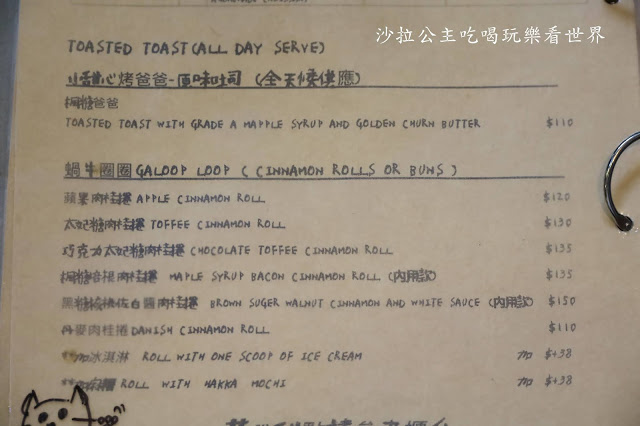 沙拉公主吃喝玩樂看世界
TOASTED TOAST(ALL DAY SERVE)
小甜心烤爸爸-原味吐司 (全天候供應)
楓糖爸爸
TOASTED TOAST WITH GRADE A MAPPLE SYRUP AND GOLDEN CHURN BUTTER $110
蝸牛圈圈 GALOOP LOOP ( CINNAMON ROLLS OR BUNS )
蘋果肉桂捲 APPLE CINNAMON ROLL $120
太妃糖肉桂捲 TOFFEE CINNAMON ROLL $130
巧克力太妃糖肉桂捲 CHOCOLATE TOFFEE CINNAMON ROLL $135
楓糖培根肉桂捲 MAPLE SYRUP BACON CINNAMON ROLL (內用款) $135
黑糖核桃佐白醬肉桂捲 BROWN SUGER WALNUT CINNAMON AND WHITE SAUCE (內用款) $150
丹麥肉桂捲 DANISH CINNAMON ROLL $110
**加冰淇淋 ROLL WITH ONE SCOOP OF ICE CREAM 加 $+38
ROLL WITH HAKKA MOCHI 加 $+38